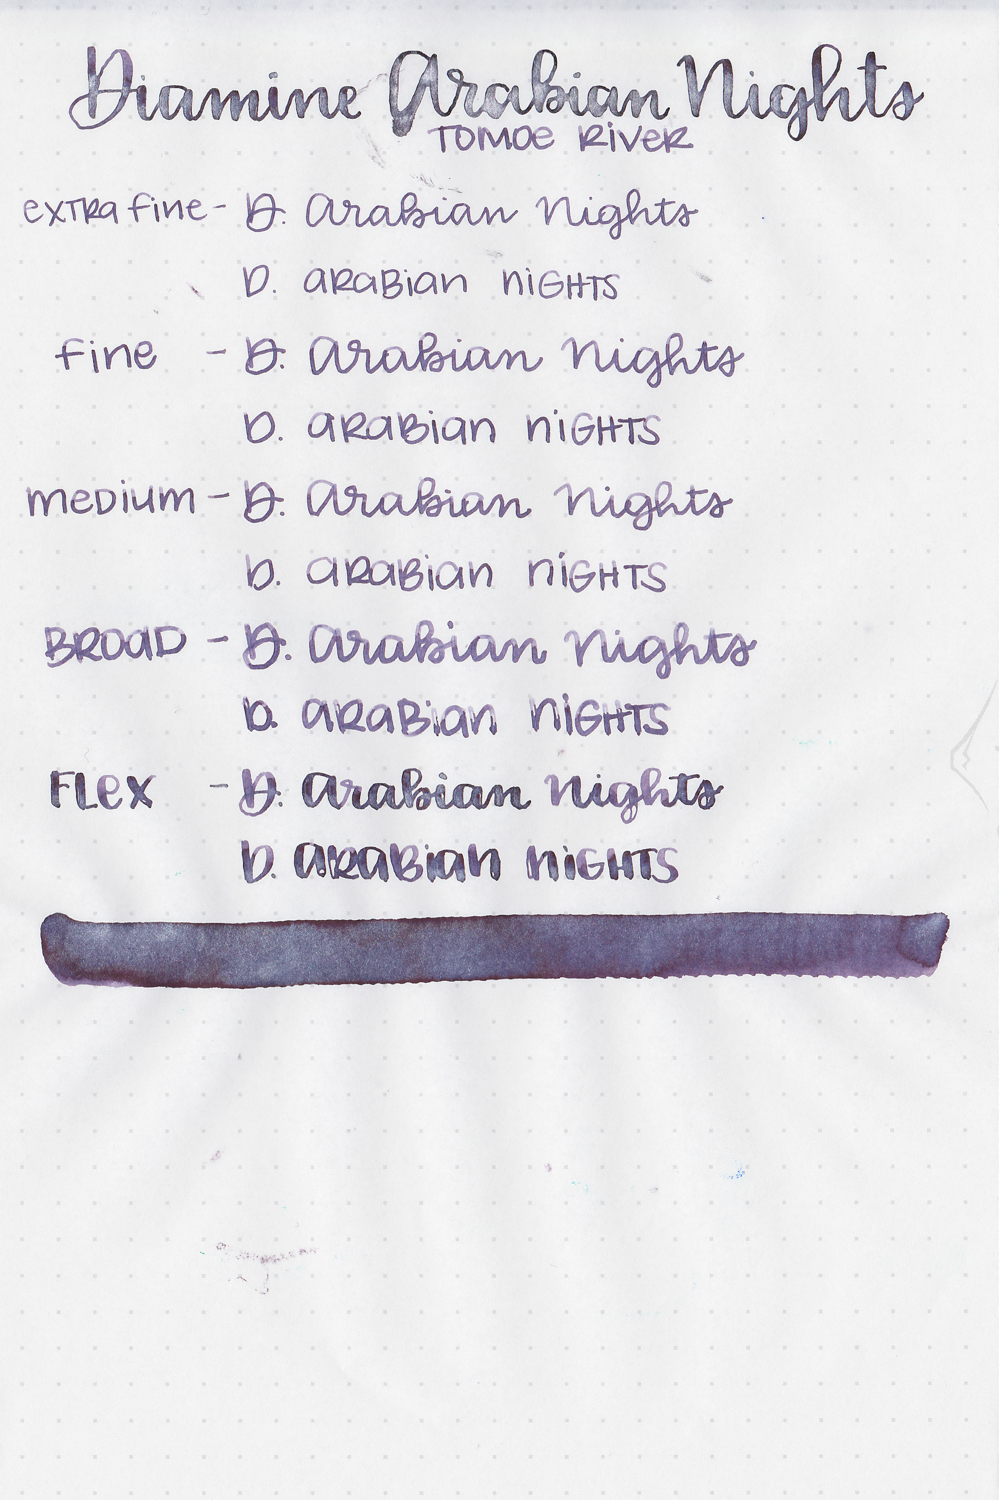 Diamine Arabian Nights
Tomoe River
extra fine - D. Arabian Nights
D. Arabian Nights
fine - D. Arabian Nights
D. Arabian Nights
medium - D. Arabian Nights
D. Arabian Nights
Broad - D. Arabian Nights
D. Arabian Nights
Flex - D. Arabian Nights
D. Arabian Nights